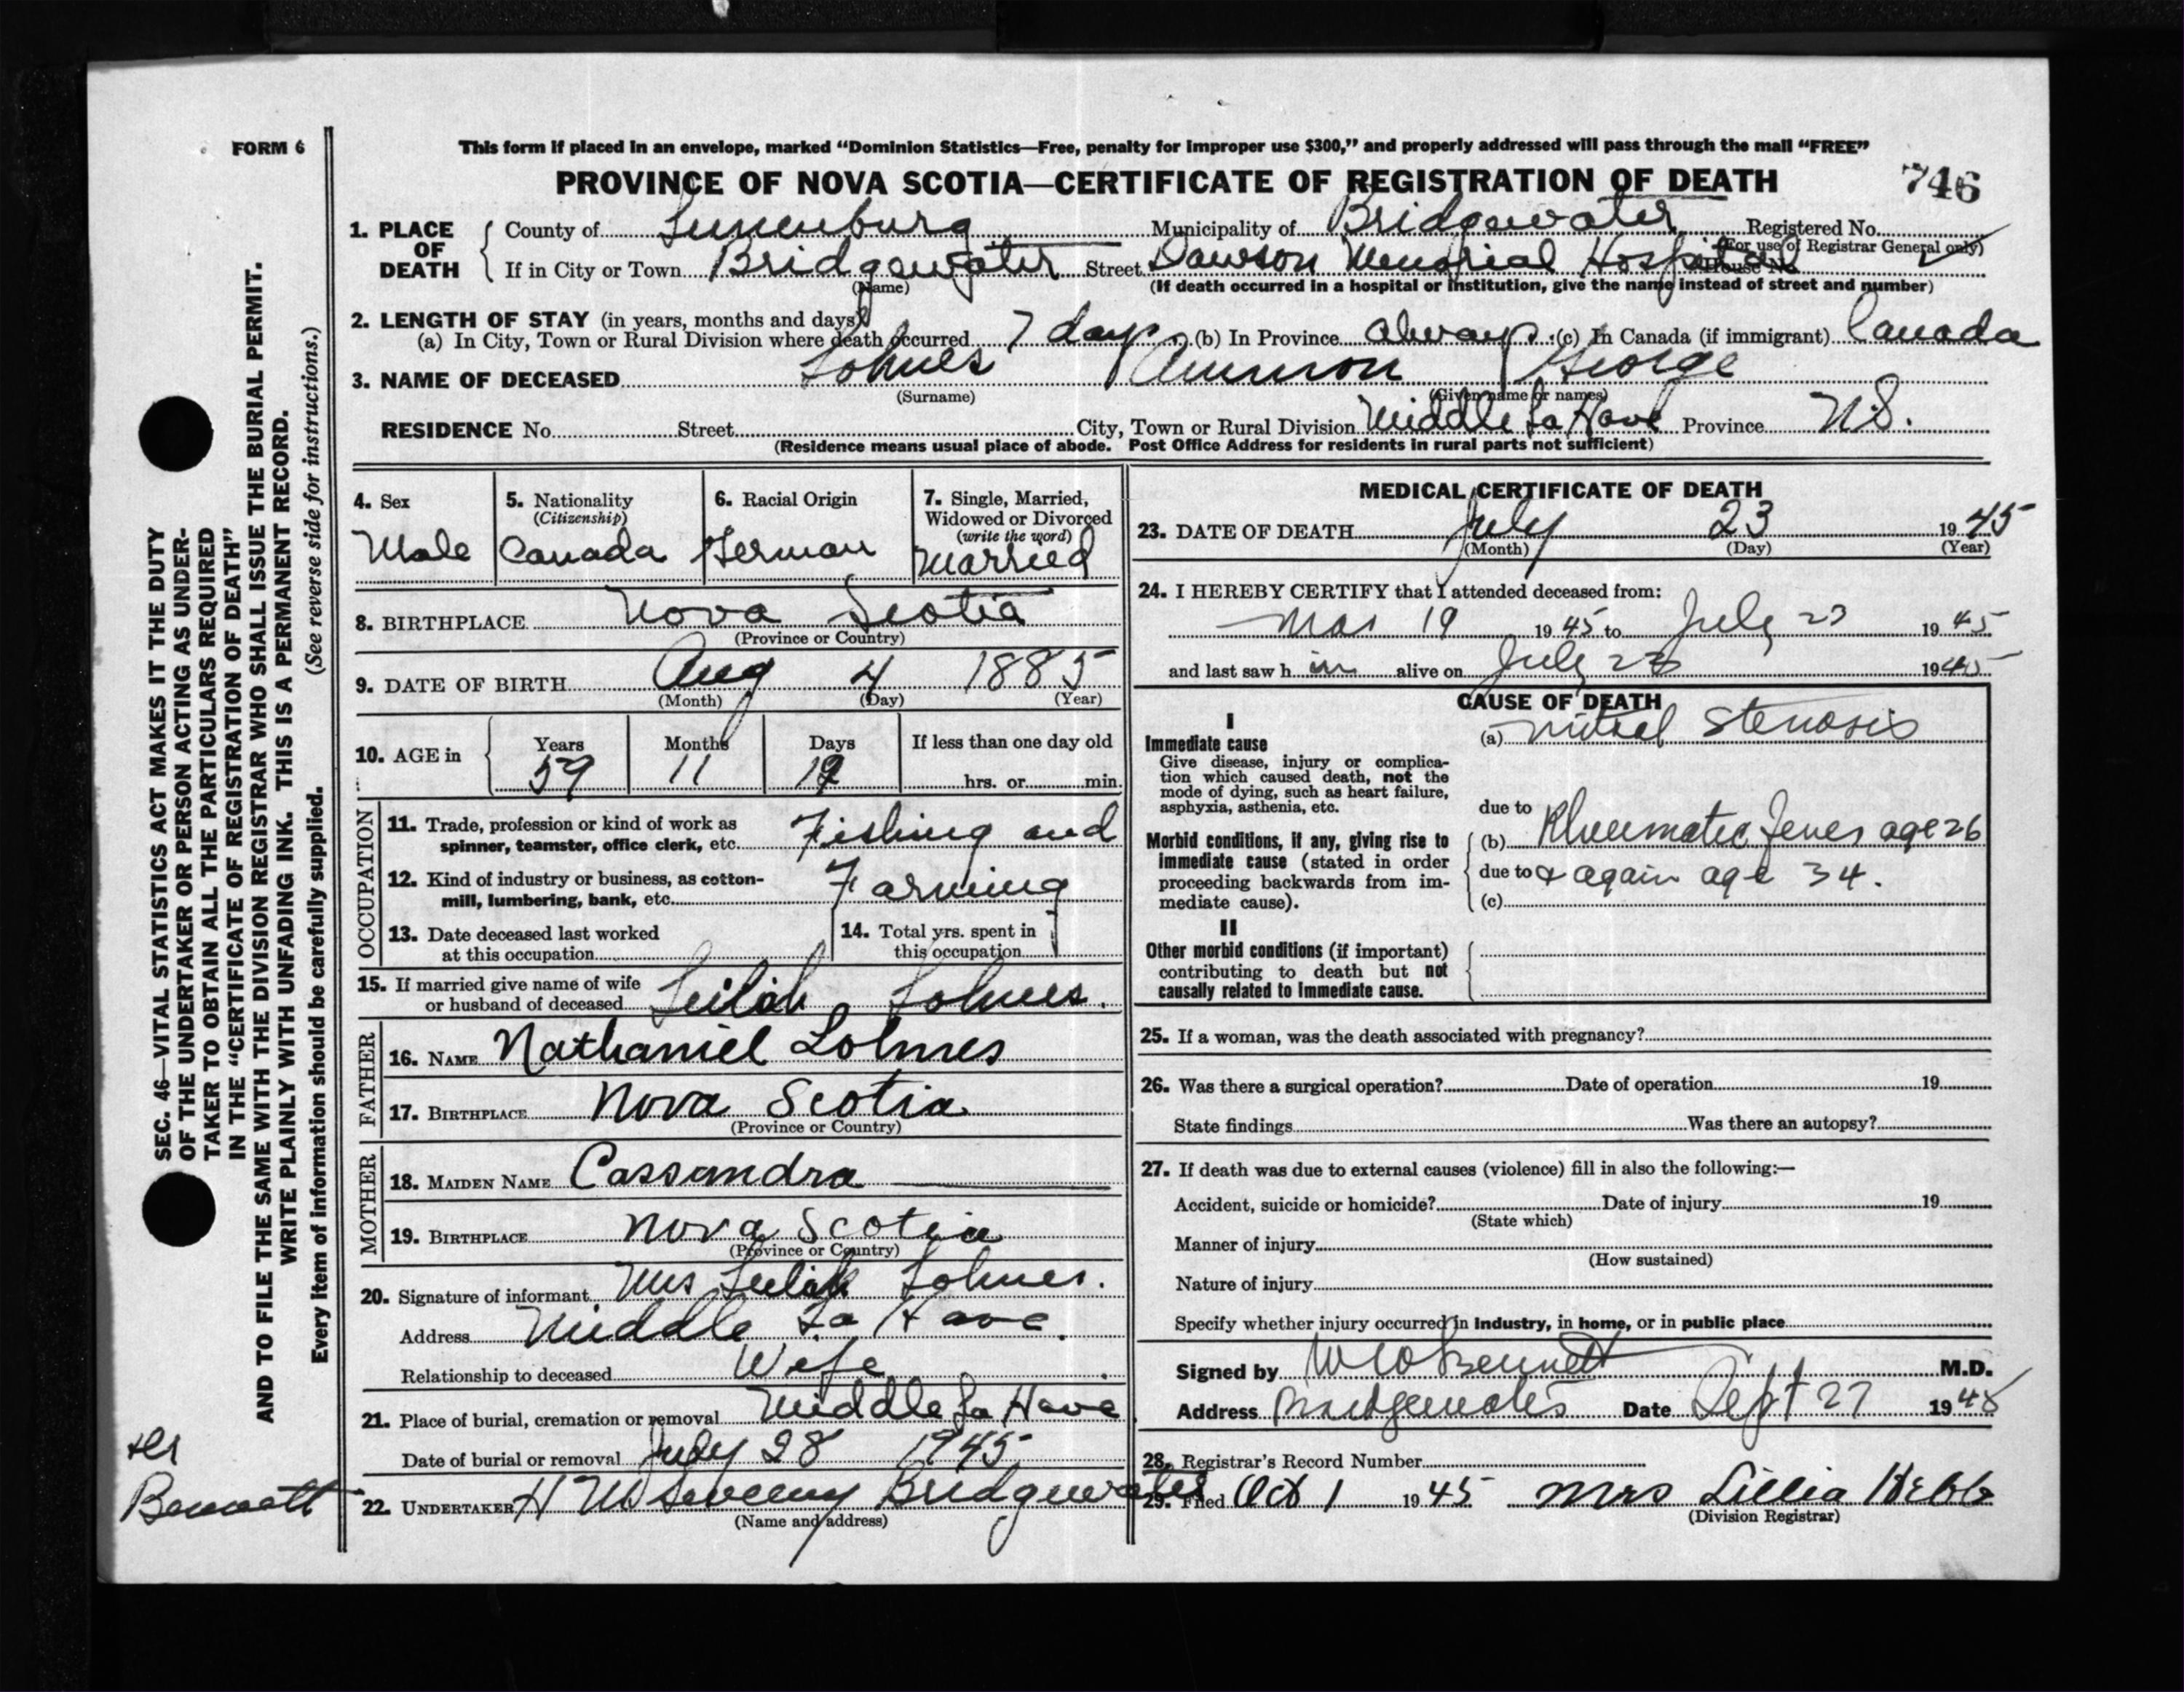 FORM 6
This form if placed in an envelope, marked "Dominion Statistics—Free, penalty for improper use $300," and properly addressed will pass through the mail "FREE"
PROVINCE OF NOVA SCOTIA—CERTIFICATE OF REGISTRATION OF DEATH
746
1. PLACE OF DEATH
County of Lunenburg Municipality of Bridgewater Registered No.
(For use of Registrar General only)
If in City or Town Bridgewater Street Dawson Memorial Hospital House No.
(Name) (If death occurred in a hospital or institution, give the name instead of street and number)
2. LENGTH OF STAY (in years, months and days)
(a) In City, Town or Rural Division where death occurred 7 days (b) In Province always (c) In Canada (if immigrant) Canada
3. NAME OF DECEASED Lohnes Ammon George
(Surname) (Given name or names)
RESIDENCE No. Street City, Town or Rural Division Middle La Have Province N.S.
(Residence means usual place of abode. Post Office Address for residents in rural parts not sufficient)
4. Sex
Male
5. Nationality
(Citizenship)
Canada
6. Racial Origin
German
7. Single, Married,
Widowed or Divorced
(write the word)
Married
8. BIRTHPLACE Nova Scotia
(Province or Country)
9. DATE OF BIRTH Aug 4 1885
(Month) (Day) (Year)
10. AGE in
Years Months Days If less than one day old
59 11 19 hrs. or min.
OCCUPATION
11. Trade, profession or kind of work as
spinner, teamster, office clerk, etc. Fishing and
12. Kind of industry or business, as cotton-
mill, lumbering, bank, etc. Farming
13. Date deceased last worked
at this occupation
14. Total yrs. spent in
this occupation
15. If married give name of wife
or husband of deceased Leilah Lohnes.
FATHER
16. NAME Nathaniel Lohnes
17. BIRTHPLACE Nova Scotia
(Province or Country)
MOTHER
18. MAIDEN NAME Cassandra
19. BIRTHPLACE Nova Scotia
(Province or Country)
20. Signature of informant Mrs Leilah Lohnes.
Address Middle La Have.
Relationship to deceased Wife
21. Place of burial, cremation or removal Middle La Have
Date of burial or removal July 28 1945
22. UNDERTAKER Bridgewater
(Name and address)
MEDICAL CERTIFICATE OF DEATH
23. DATE OF DEATH July 23 1945
(Month) (Day) (Year)
24. I HEREBY CERTIFY that I attended deceased from:
Mar 19 1945 to July 23 1945
and last saw h im alive on July 23 1945
CAUSE OF DEATH
I
Immediate cause
Give disease, injury or complica-
tion which caused death, not the
mode of dying, such as heart failure,
asphyxia, asthenia, etc.
(a) Mitral Stenosis
due to
Morbid conditions, if any, giving rise to
immediate cause (stated in order
proceeding backwards from im-
mediate cause).
(b) Rheumatic Fever age 26
due to & again age 34.
(c)
II
Other morbid conditions (if important)
contributing to death but not
causally related to immediate cause.
25. If a woman, was the death associated with pregnancy?
26. Was there a surgical operation? Date of operation 19
State findings Was there an autopsy?
27. If death was due to external causes (violence) fill in also the following:—
Accident, suicide or homicide? Date of injury 19
(State which)
Manner of injury
(How sustained)
Nature of injury
Specify whether injury occurred in industry, in home, or in public place
Signed by Bennett M.D.
Address Bridgewater Date Sept 27 1945
28. Registrar's Record Number
29. Filed Oct 1 1945 Mrs Lillia Hebb
(Division Registrar)
SEC. 46—VITAL STATISTICS ACT MAKES IT THE DUTY
OF THE UNDERTAKER OR PERSON ACTING AS UNDER-
TAKER TO OBTAIN ALL THE PARTICULARS REQUIRED
IN THE "CERTIFICATE OF REGISTRATION OF DEATH"
AND TO FILE THE SAME WITH THE DIVISION REGISTRAR WHO SHALL ISSUE THE BURIAL PERMIT.
WRITE PLAINLY WITH UNFADING INK. THIS IS A PERMANENT RECORD.
Every item of information should be carefully supplied. (See reverse side for instructions.)
Bennett